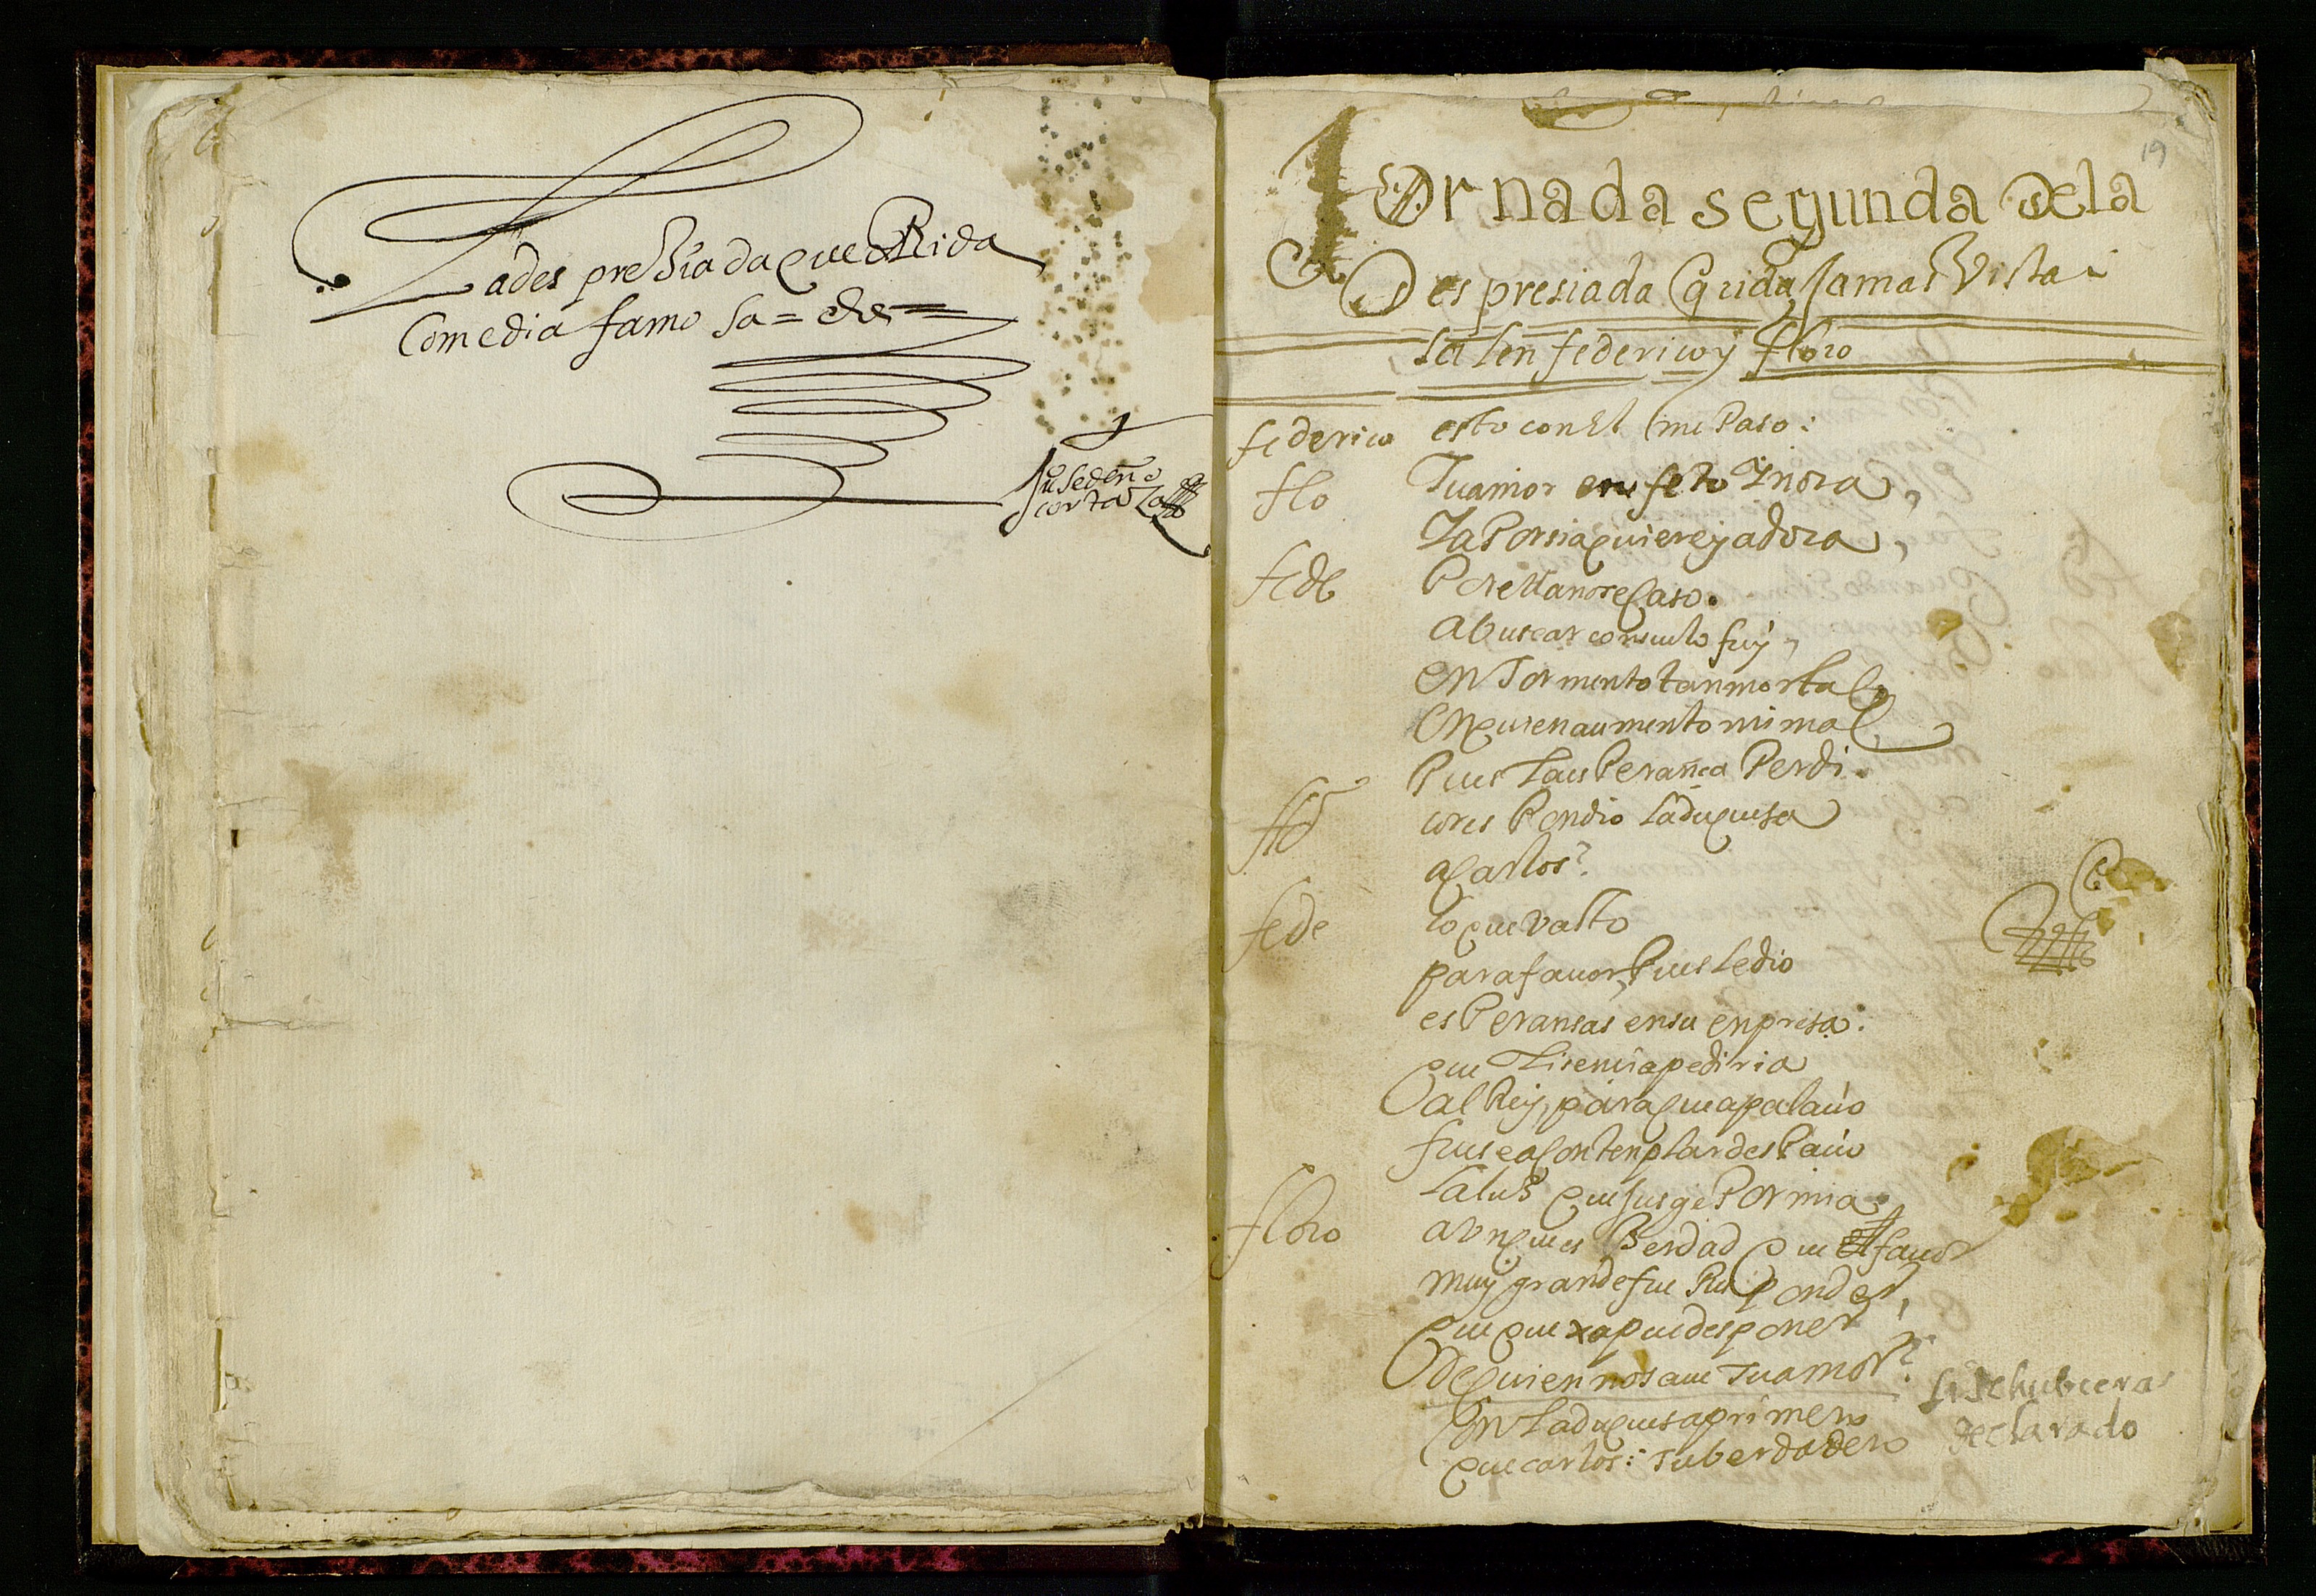 La despreSiada queRida
Comedia famosa = de =
Ju sedeño
corta
19
Jornada segunda de la
Despresiada querida Jamas Vista
salen federico y floro
federico esto con El me Paso:
flo Tu amor en efeto Ynora,
Ya Porsia quiere y adora,
fede Por ella no se Caso.
A buscar consuelo fuy,
En Tormento tan mortal
En quien aumento mi mal
Pues La esPerança Perdi.
flo corresPondio La duquesa
a Carlos?
fede lo que vasto
para favor, Pues le dio
esPeransas en su enpresa:
que Lisencia pediria
al Rey, para que a palacio
fuese a Contenplar desPacio
La luz que jusge Por mia;
floro aunque es Berdad que El favor
muy grande fue Responder,
que quexa puedes poner
de quien no save Tu amor?
Si te hubieras
declarado
Con La duquesa primero
que carlos: Tu berdadero